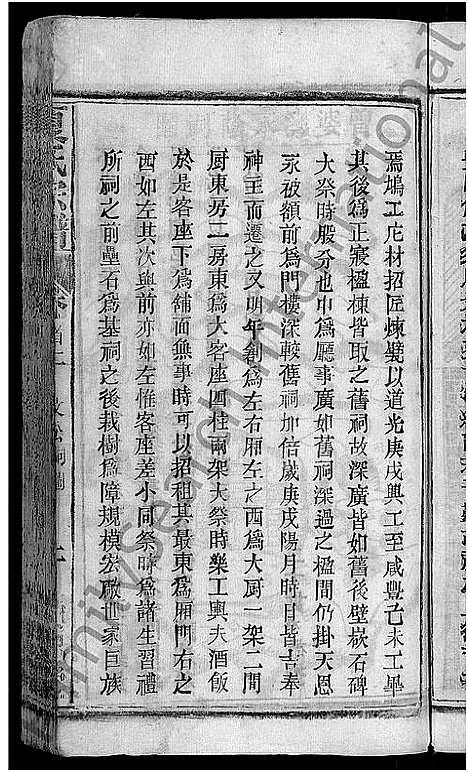 焉鳩工庀材招匠煉甓以道光庚戌興工至咸豐乙未工畢
其後爲正寢楹棟皆取之舊祠故深廣皆如舊後壁嶔石碑
大祭時股分也中爲廳事廣如舊祠深過之楹間仍掛天恩
永被額前爲門樓深較舊祠加倍歲庚戌陽月時日皆吉奉
神主而遷之又明年創爲左右厢左之西爲大厨一架二間
厨東房二房東爲大客座四柱兩架大祭時樂工輿夫酒飯
於是客座下爲舖面無事時可以招租其最東爲厢門右之
西如左其次與前亦如左惟客座差小同祭時爲諸生習禮
所祠之前壘石爲基祠之後栽樹爲障規模宏敞世家巨族
夏氏宗譜
卷首二
祠圖
FamilySearch International